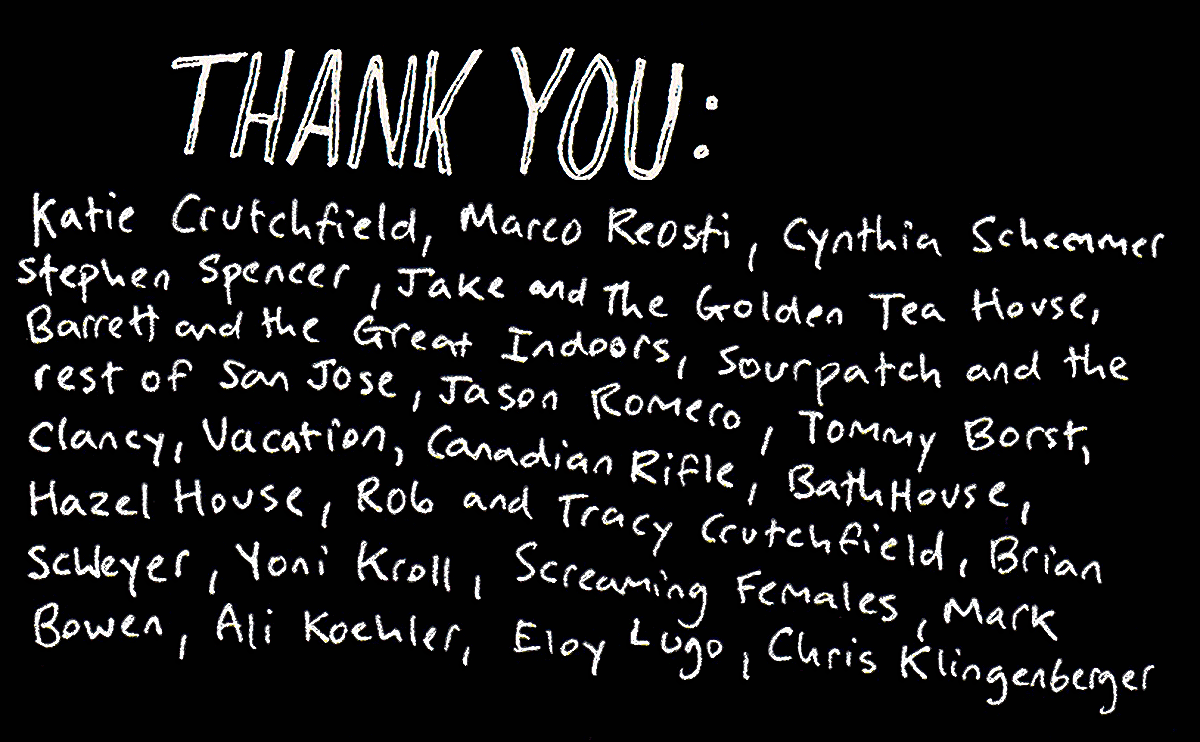 THANK YOU:
Katie Crutchfield, Marco Reosti, Cynthia Schemmer
Stephen Spencer, Jake and the Golden Tea House,
Barrett and the Great Indoors, Sourpatch and the
rest of San Jose, Jason Romero, Tommy Borst,
Clancy, Vacation, Canadian Rifle, BathHouse,
Hazel House, Rob and Tracy Crutchfield, Brian
Schleyer, Yoni Kroll, Screaming Females, Mark
Bowen, Ali Koehler, Eloy Lugo, Chris Klingenberger